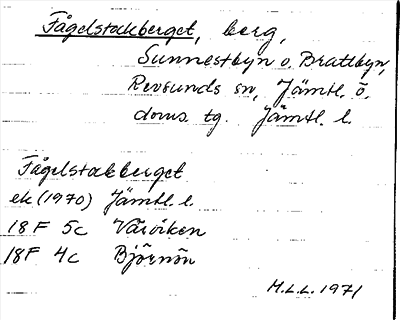 Fågelstakberget, berg,
Sunnestbyn o. Brattbyn,
Revsunds sn, Jämtl. ö.
doms. tg. Jämtl. l.
Fågelstakberget
ek (1970) Jämtl. l.
18F 5c Våviken
18F 4c Björnön
M.L.L. 1971